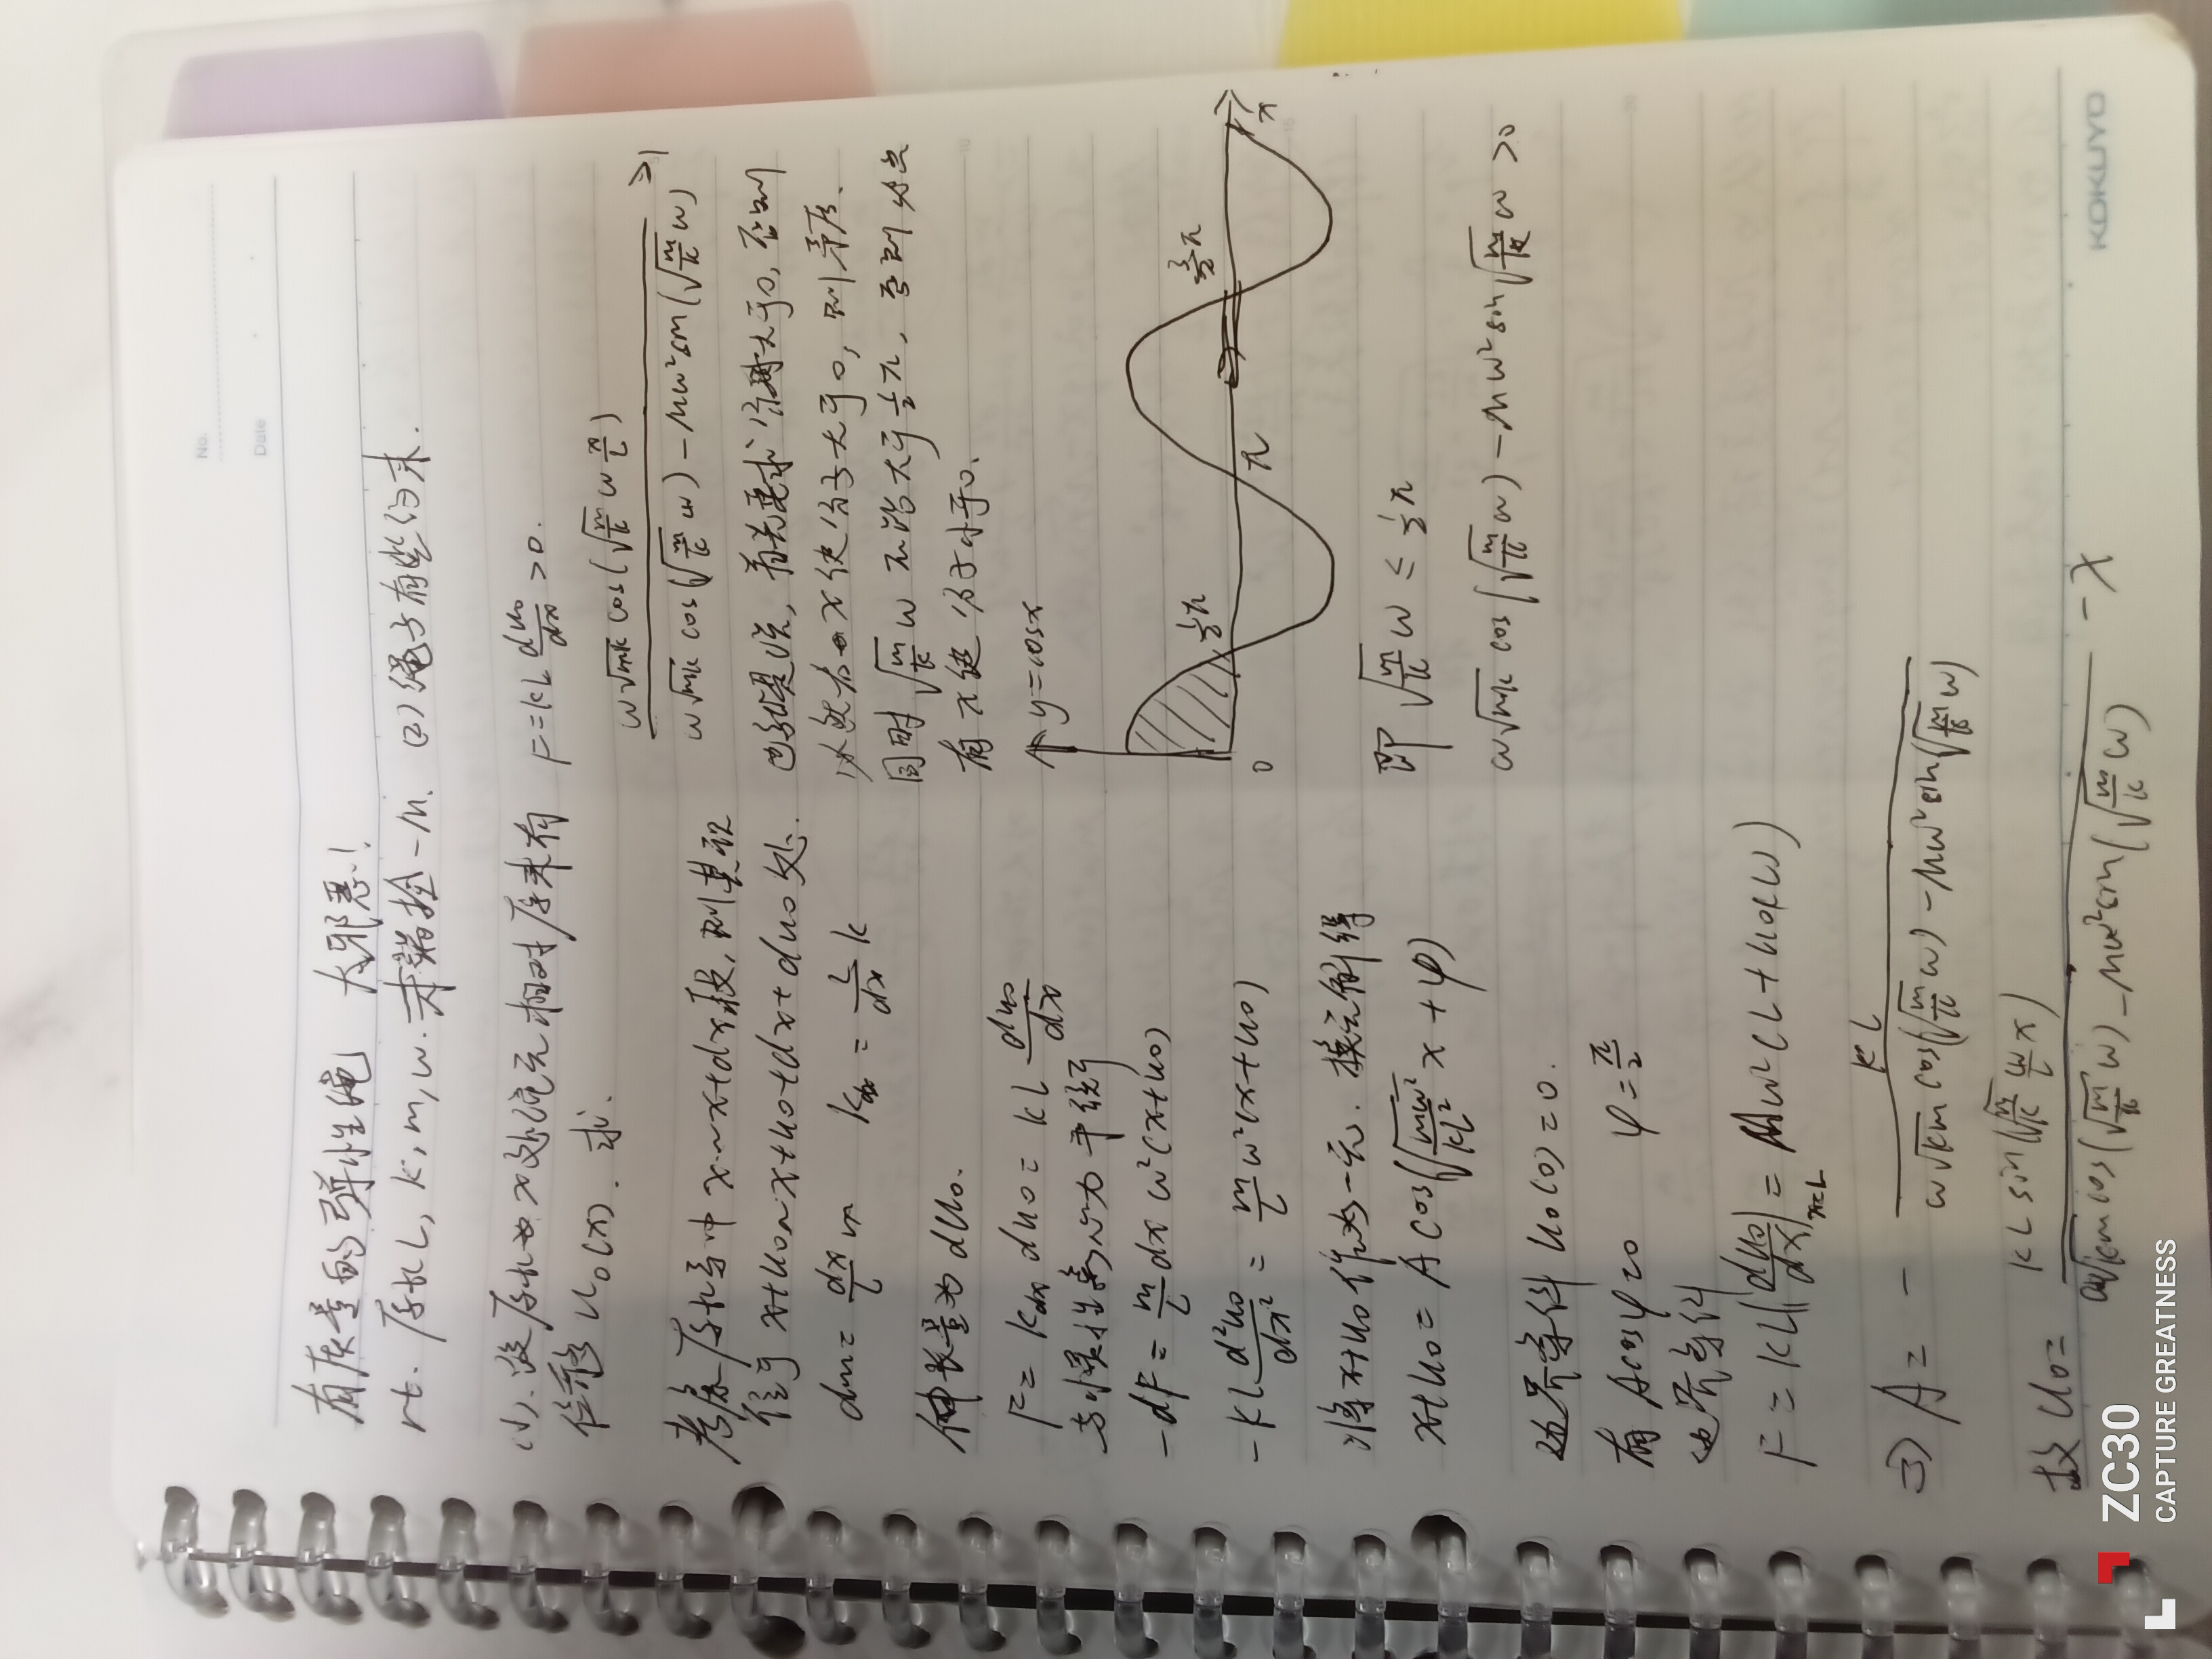 No.
Date
有质量的弹性绳 大邪恶!
rt. 原长L, k, m, ω. 末端拴一M.
(1). 设原长为x处绳元相对原来有
位移 u₀(x). 求.
考虑原长为中 x~x+dx段, 则其现
位于 x+u₀~x+u₀+dx+du₀ 处.
dm = dx/L m k_dx = L/dx k
伸长量为 du₀.
F = k_dx du₀ = kL du₀/dx
与惯性离心力平衡
-dF = m/L dx ω²(x+u₀)
-kL d²u₀/dx² = m/L ω²(x+u₀)
将x+u₀作为一元. 换元解得
x+u₀ = A cos(√(mω²/kL²) x + φ)
边界条件 u₀(0)=0.
有 Acosφ=0 φ=π/2
边界条件
F = kL(du₀/dx)|x=L = Mω²(L+u₀(L))
⇒ A = - kL / (ω√km cos(√(m/k) ω) - Mω² sin(√(m/k) ω))
故 u₀ = kL sin(√(m/k) ω/L x) / (ω√km cos(√(m/k) ω) - Mω² sin(√(m/k) ω)) - x
(2) 绳子有些约束.
F = kL du₀/dx > 0.
ω√mk cos(√(m/k) ω x/L) / (ω√mk cos(√(m/k) ω) - Mω² sin(√(m/k) ω)) ≥ 1
也就是说, 首先要求分母大于0, 否则
必然有x使分子大于0, 则矛盾.
同时 √(m/k) ω 不能大于 1/2 π, 否则必
有x使分子小于0.
y=cosx
0
1/2 π
π
3/2 π
x
即 √(m/k) ω ≤ 1/2 π
ω√mk cos(√(m/k) ω) - Mω² sin√(m/k) ω > 0
KOKUYO
ZC30
CAPTURE GREATNESS